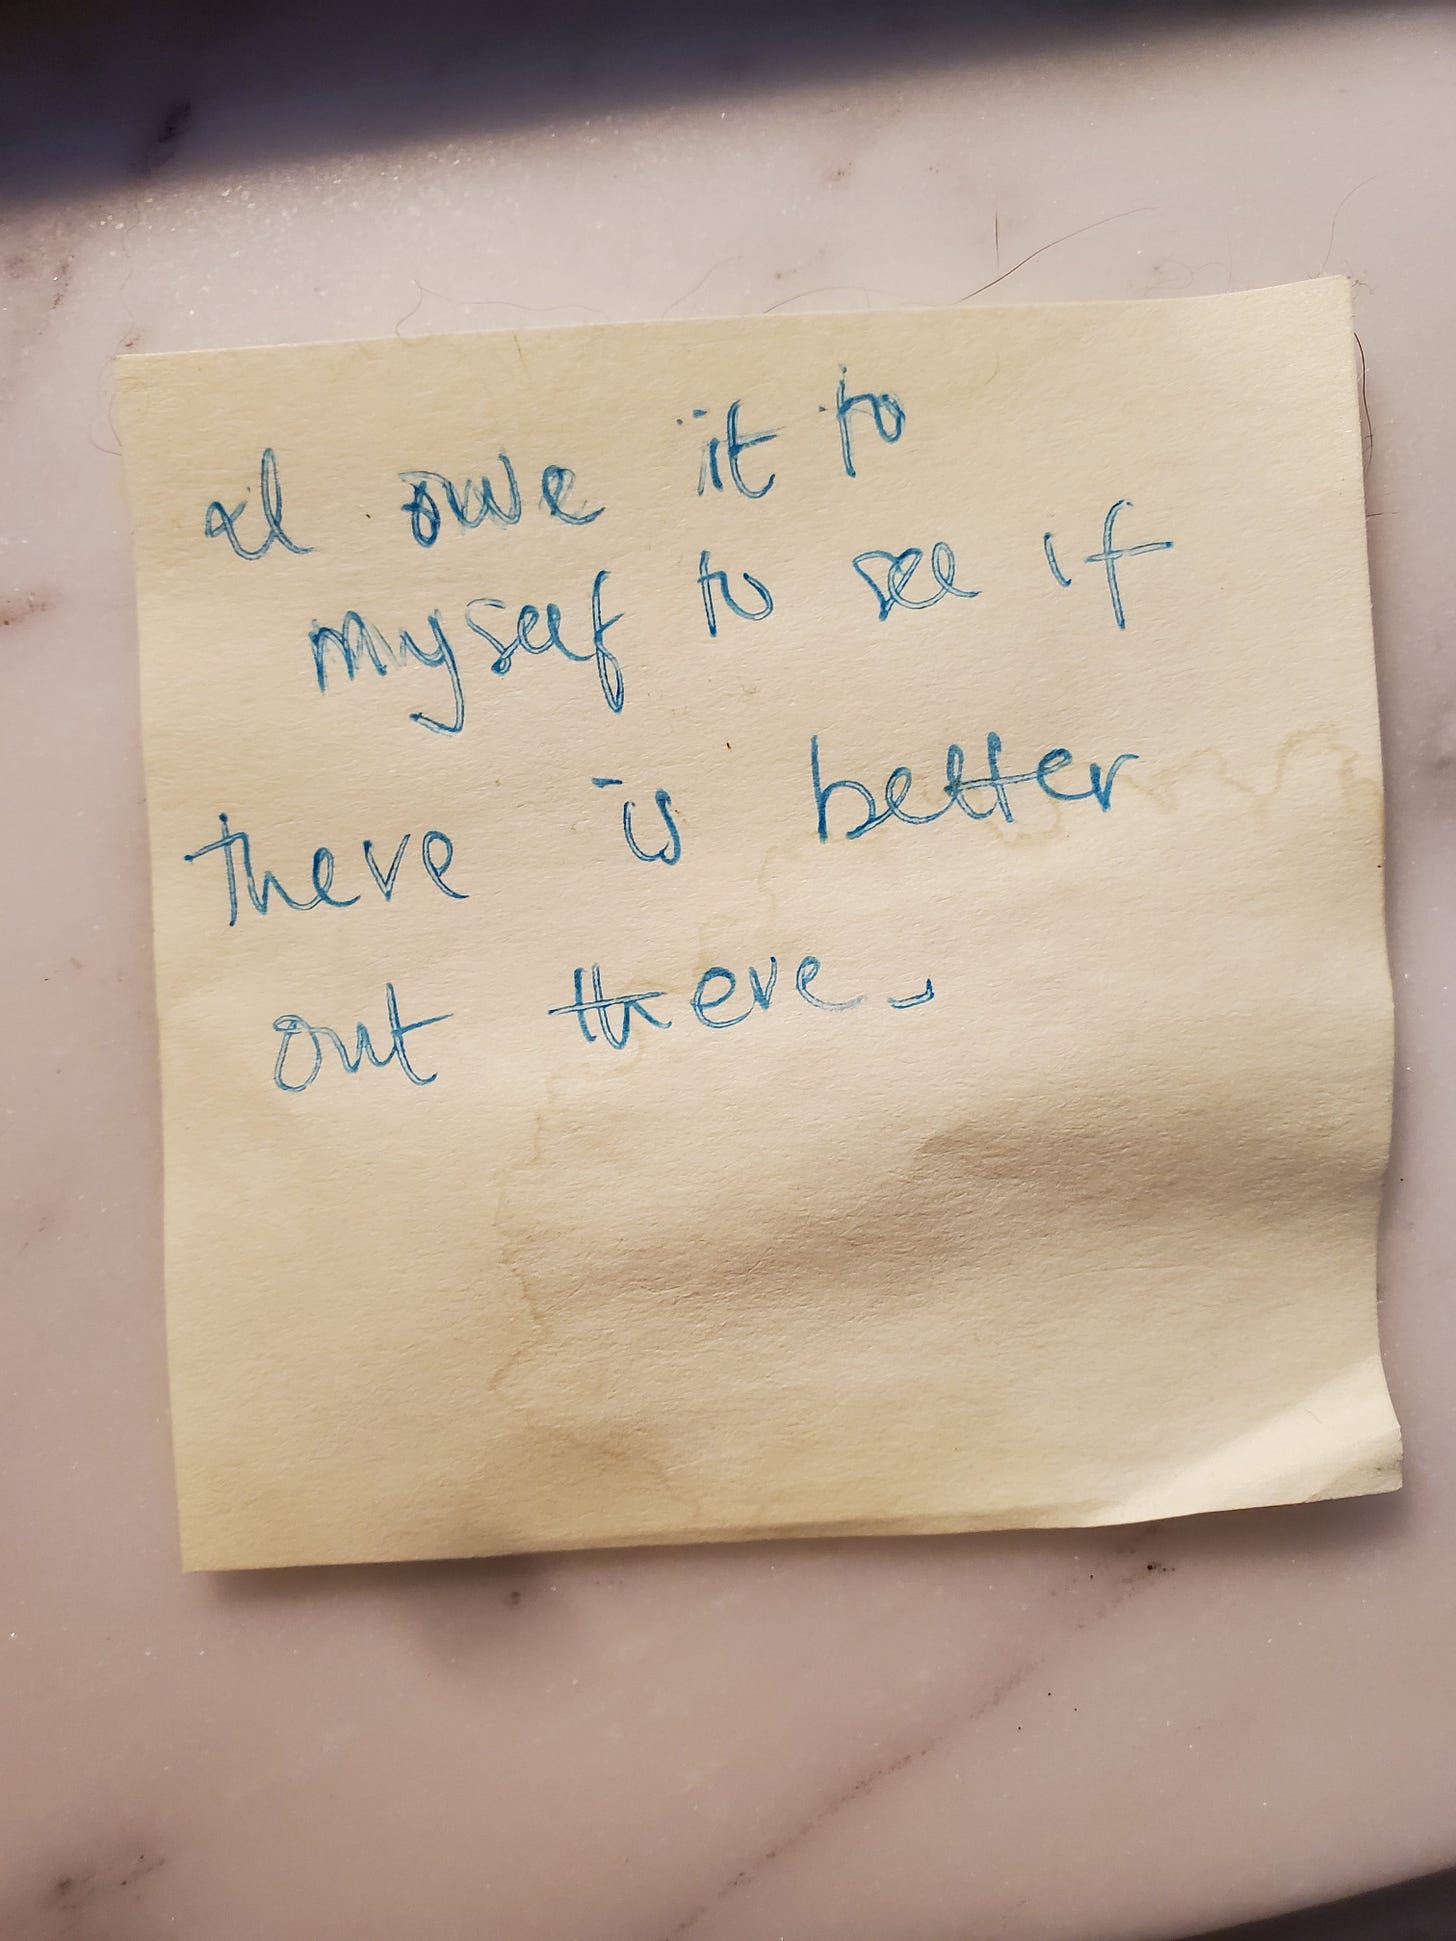 I owe it to
myself to see if
there is better
out there.